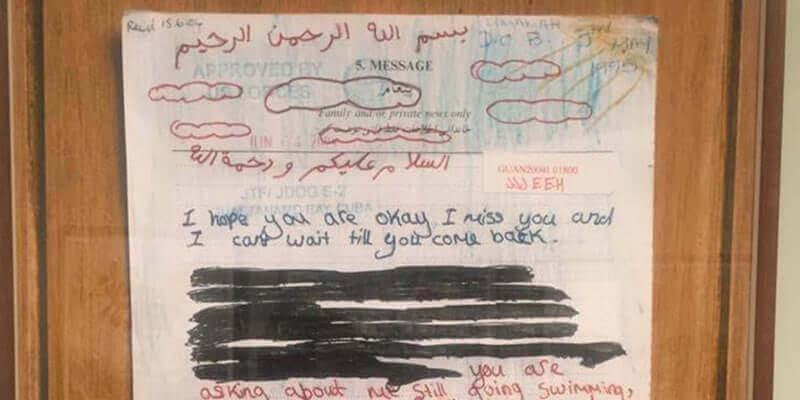 Recd 15.6.04
بسم الله الرحمن الرحيم
D.O.B. 3rd May
1995
APPROVED BY
US FORCES
5. MESSAGE
Family and/or private news only
JUN
السلام عليكم ورحمة الله
GUAN20040 01800
JJJEEH
JTF/ JDOG E-2
GUANTANAMO BAY, CUBA
I hope you are okay, I miss you and
I cant wait till you come back.
you are
asking about me still going swimming,